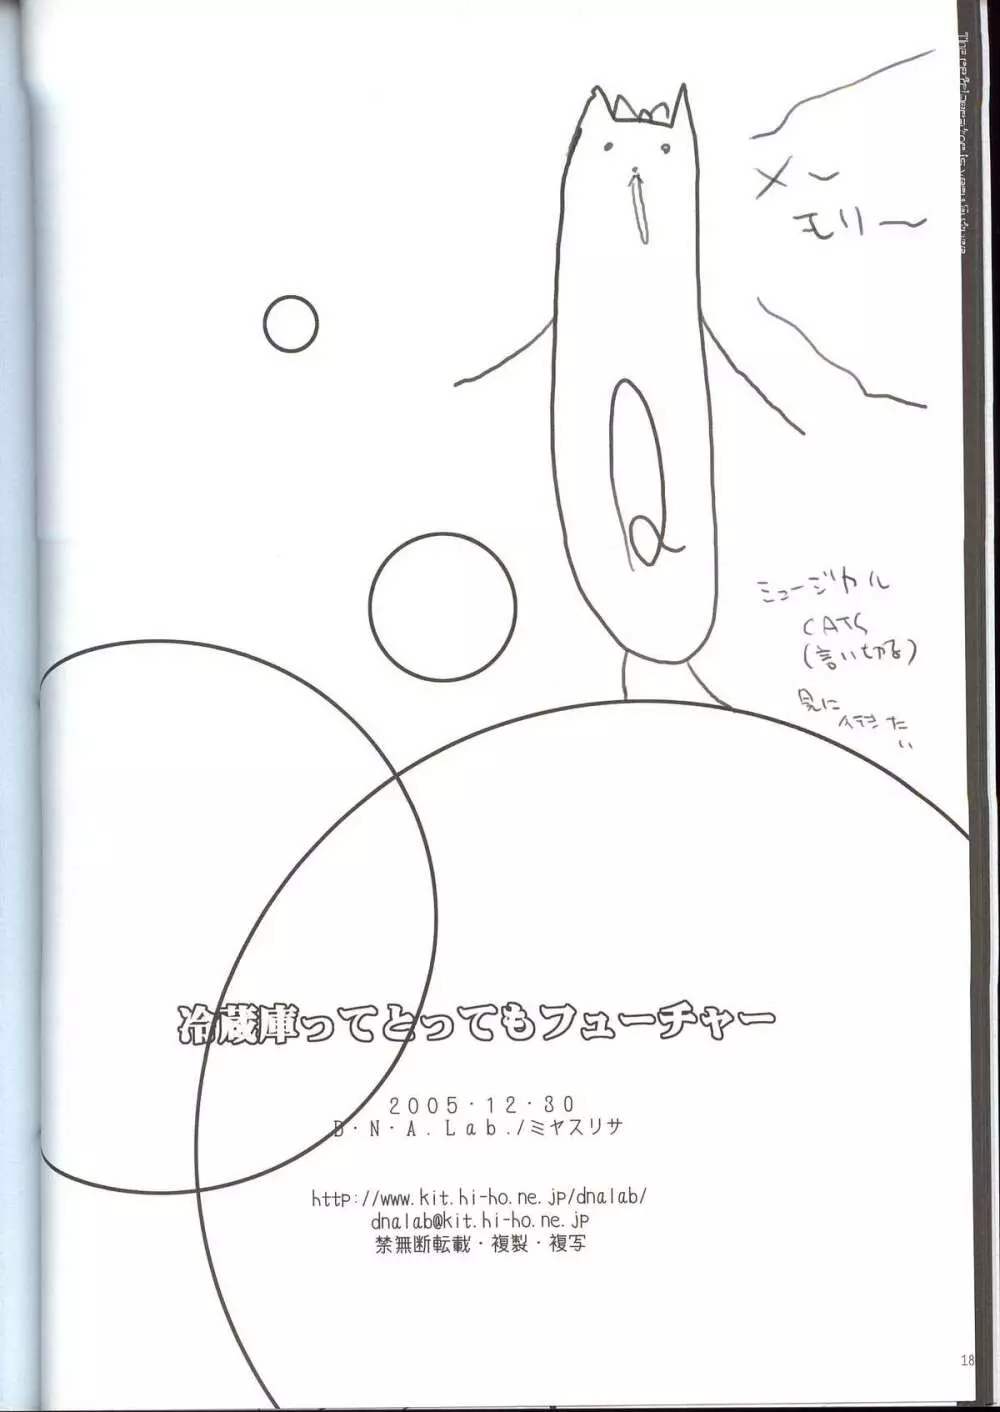 メ〜
モリー〜
ミュージカル
CATS
(言い切る)
見に
行きた
い
冷蔵庫ってとってもフューチャー
2005・12・30
D・N・A.Lab./ミヤスリサ
http://www.kit.hi-ho.ne.jp/dnalab/
dnalab@kit.hi-ho.ne.jp
禁無断転載・複製・複写
18